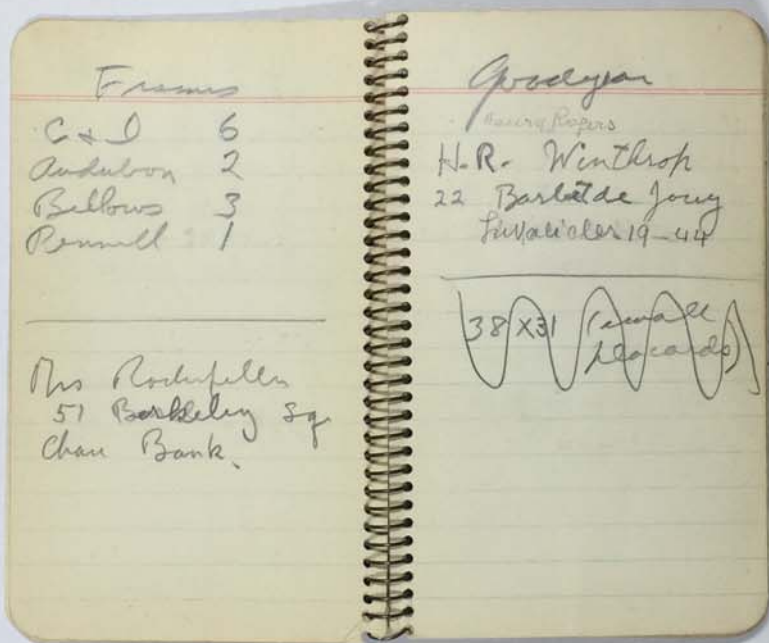 Frames
C & I 6
Audubon 2
Bellows 3
1
Mrs Rockefeller
51 Berkeley Sq
Chase Bank.
Goodyear
Henry Rogers
H. R. Winthrop
22 Barbet de Jouy
Invalides 19-44
38 X 31 (small
placards)